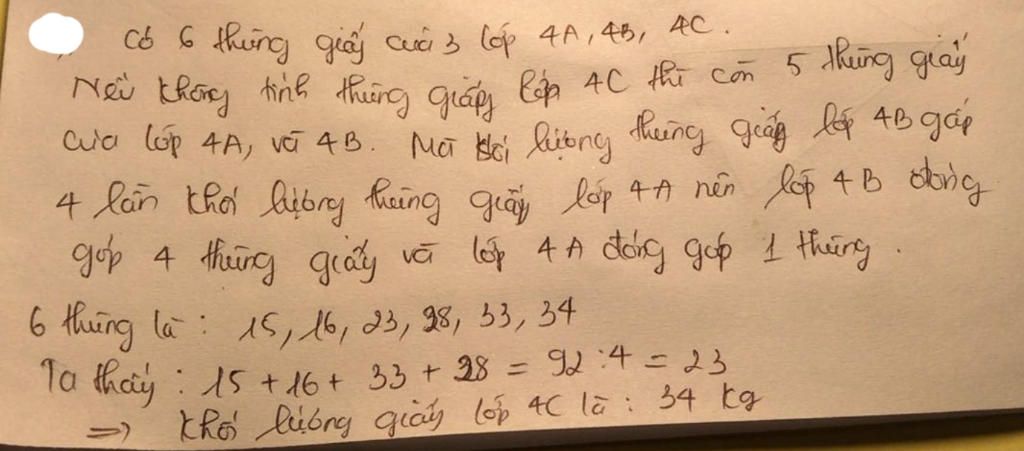 Có 6 thùng giấy của 3 lớp 4A, 4B, 4C.
Nếu không tính thùng giấy lớp 4C thì còn 5 thùng giấy
của lớp 4A, và 4B. Mà khối lượng thùng giấy lớp 4B gấp
4 lần khối lượng thùng giấy lớp 4A nên lớp 4B đóng
góp 4 thùng giấy và lớp 4A đóng góp 1 thùng.
6 thùng là: 15, 16, 23, 28, 33, 34
Ta thấy: 15 + 16 + 33 + 28 = 92 : 4 = 23
=> khối lượng giấy lớp 4C là: 34 kg